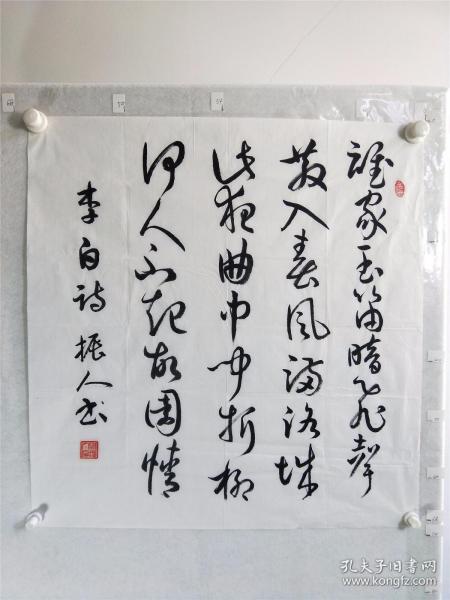 谁家玉笛暗飞声
散入春风满洛城
此夜曲中闻折柳
何人不起故园情
李白诗 振人书
孔夫子旧书网
www.kongfz.com